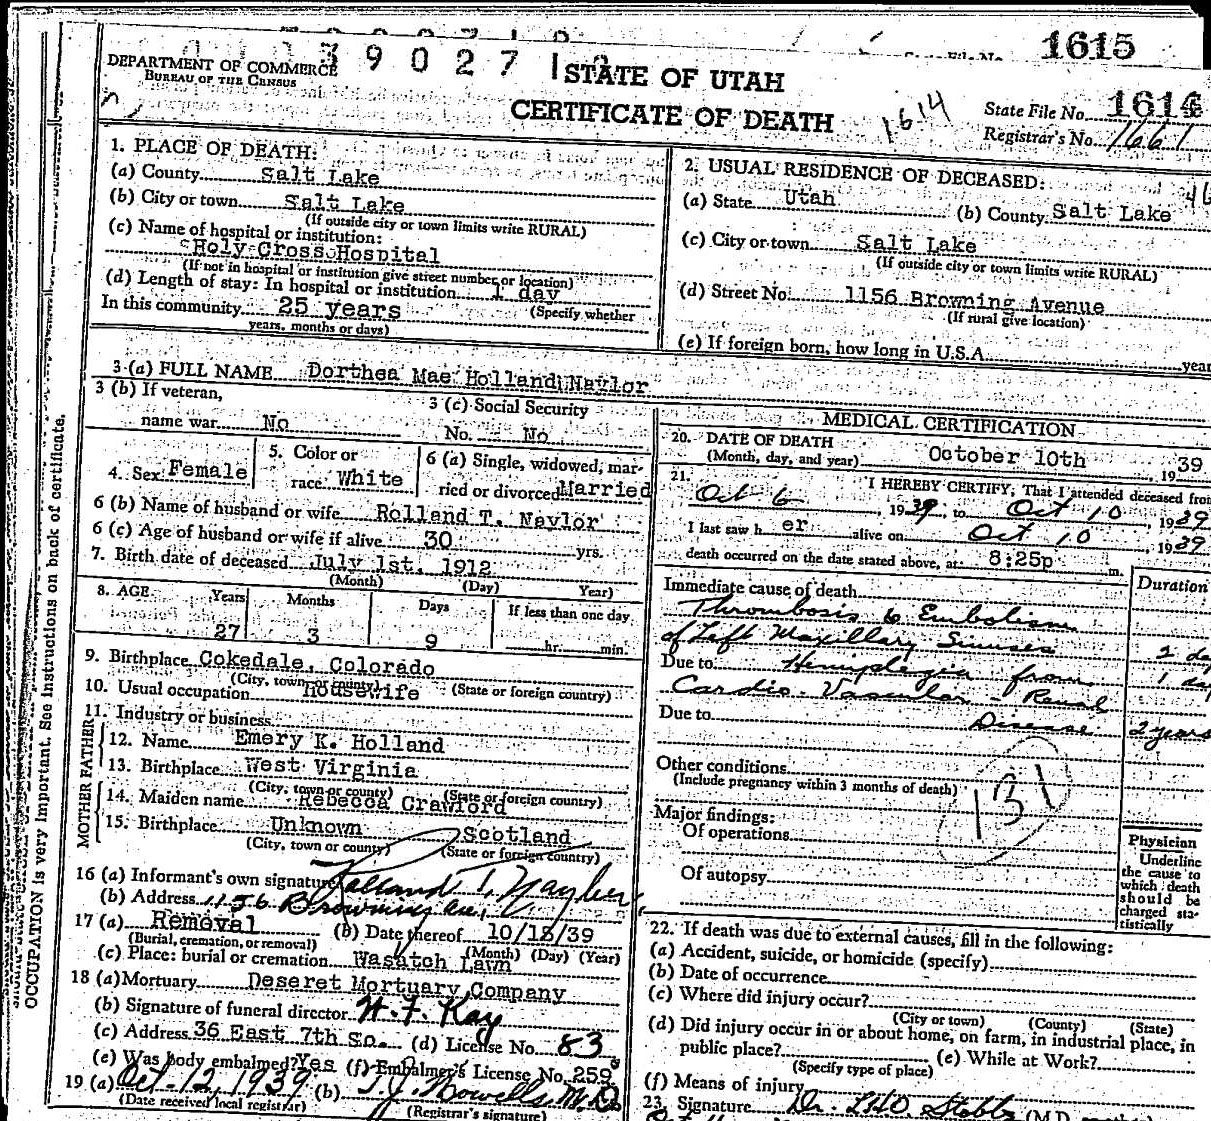 1615
39027
DEPARTMENT OF COMMERCE
BUREAU OF THE CENSUS
STATE OF UTAH
CERTIFICATE OF DEATH
1614
State File No. 1614
Registrar's No. 1661
1. PLACE OF DEATH:
(a) County Salt Lake
(b) City or town Salt Lake
(If outside city or town limits write RURAL)
(c) Name of hospital or institution:
Holy Cross Hospital
(If not in hospital or institution give street number or location)
(d) Length of stay: In hospital or institution 1 day
In this community 25 years (Specify whether
years, months or days)
2. USUAL RESIDENCE OF DECEASED:
46
(a) State Utah (b) County Salt Lake
(c) City or town Salt Lake
(If outside city or town limits write RURAL)
(d) Street No. 1156 Browning Avenue
(If rural give location)
(e) If foreign born, how long in U.S.A. year
3 (a) FULL NAME Dorthea Mae Holland Naylor
3 (b) If veteran,
name war No
3 (c) Social Security
No. No
4. Sex Female
5. Color or
race White
6 (a) Single, widowed, mar-
ried or divorced Married
6 (b) Name of husband or wife Rolland T. Naylor
6 (c) Age of husband or wife if alive 30 yrs.
7. Birth date of deceased July 1st. 1912
(Month) (Day) Year)
8. AGE Years Months Days If less than one day
27 3 9 hr. min.
9. Birthplace Cokedale, Colorado
(City, town or county) (State or foreign country)
10. Usual occupation Housewife
11. Industry or business
FATHER
12. Name Emery K. Holland
13. Birthplace West Virginia
(City, town or county) (State or foreign country)
MOTHER
14. Maiden name Rebecca Crawford
15. Birthplace Unknown Scotland
(City, town or county) (State or foreign country)
16 (a) Informant's own signature Rolland T. Naylor
(b) Address 1156 Browning Ave,
17 (a) Removal (b) Date thereof 10/13/39
(Burial, cremation, or removal) (Month) (Day) (Year)
(c) Place: burial or cremation Wasatch Lawn
18 (a) Mortuary Deseret Mortuary Company
(b) Signature of funeral director W. F. Kay
(c) Address 36 East 7th So. (d) License No. 83
(e) Was body embalmed? Yes (f) Embalmer's License No. 259
19 (a) Oct-12, 1939 (b) T. J. Howells, M.D.
(Date received local registrar) (Registrar's signature)
MEDICAL CERTIFICATION
20. DATE OF DEATH
(Month, day, and year) October 10th 1939
21. I HEREBY CERTIFY, That I attended deceased from
Oct 6, 1939, to Oct 10, 1939
I last saw her alive on Oct 10, 1939
death occurred on the date stated above, at 8:25p m.
Duration
Immediate cause of death
Thrombosis & Embolism
of Left Maxillary Sinuses 2 da
Due to Hemiplegia from 1 day
Cardio-Vascular-Renal
Due to Disease 2 years
Other conditions
(Include pregnancy within 3 months of death)
131
Major findings:
Of operations
Of autopsy
Physician
Underline
the cause to
which death
should be
charged sta-
tistically
22. If death was due to external causes, fill in the following:
(a) Accident, suicide, or homicide (specify)
(b) Date of occurrence
(c) Where did injury occur?
(City or town) (County) (State)
(d) Did injury occur in or about home, on farm, in industrial place, in
public place? (e) While at Work?
(Specify type of place)
(f) Means of injury
23. Signature Dr. LHO Stobbe
OCCUPATION is very important. See instructions on back of certificate.